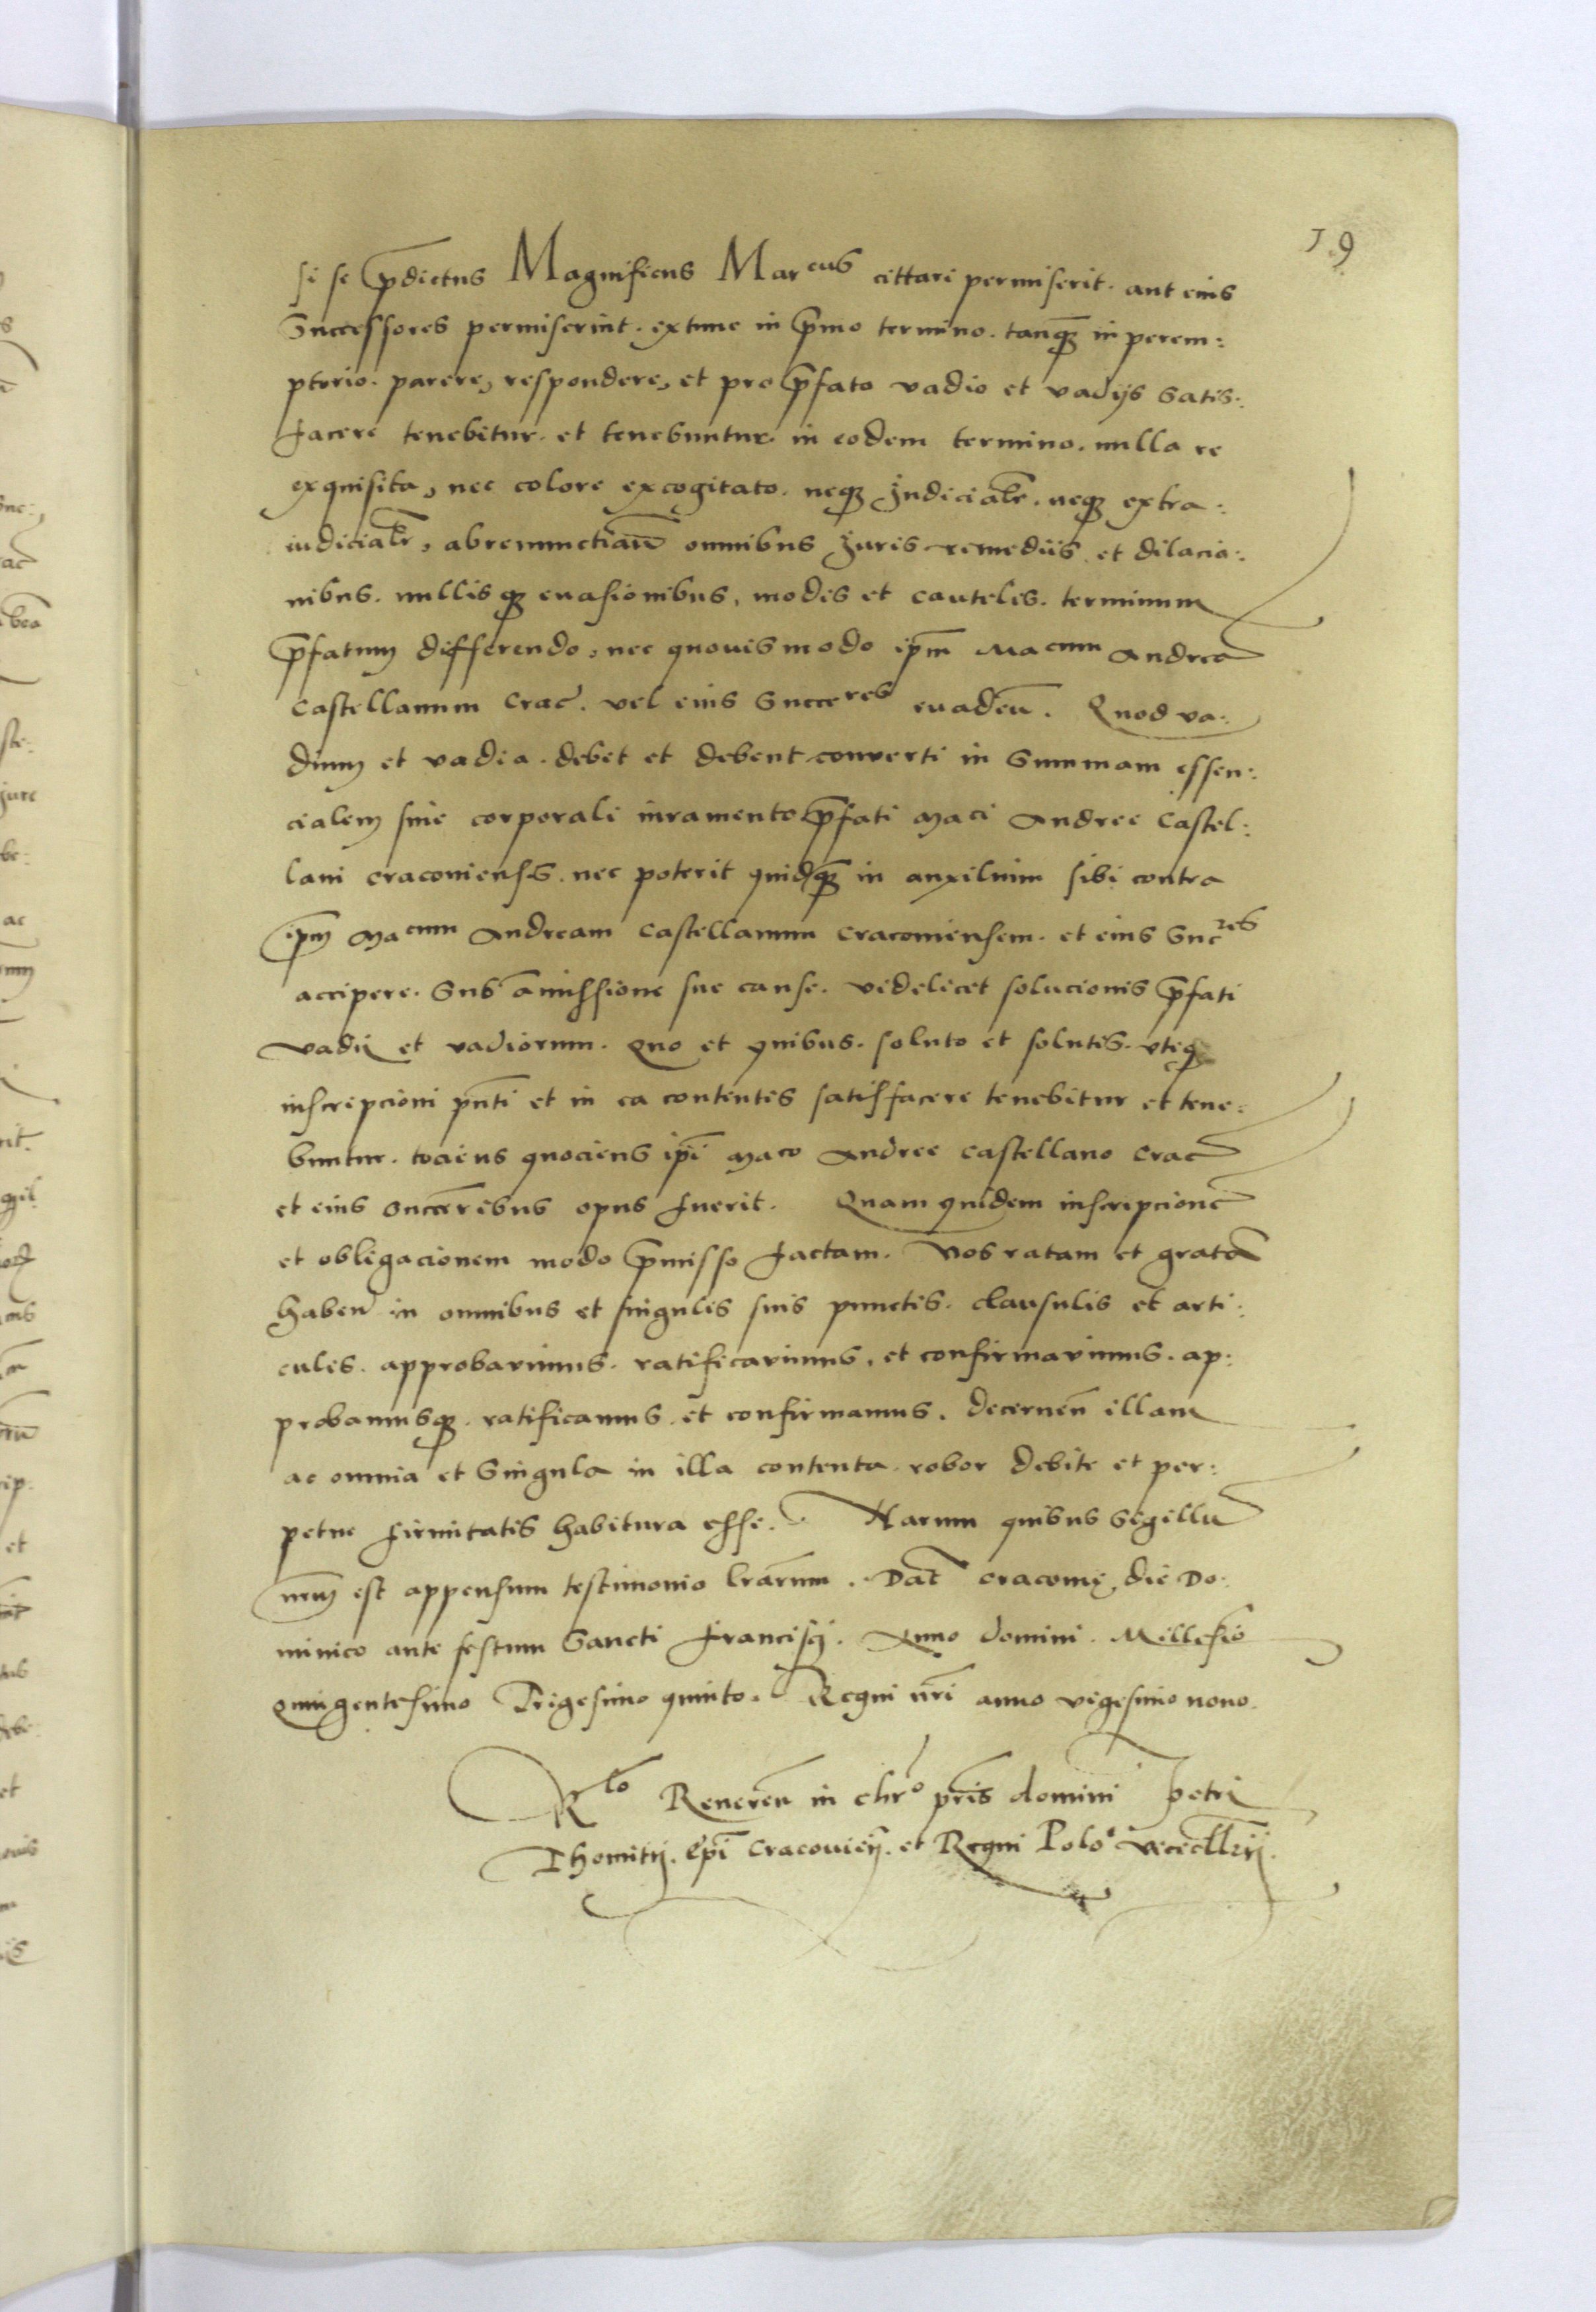 19
si se p̄dictus Magnificus Marcus cittari permiserit. aut eius
Successores permiserint. extunc in p̄mo termino. tanq̄ in perem:
ptorio. parere, respondere, et pro p̄fato vadio et vadijs satis:
facere tenebitur. et tenebuntur. in eodem termino. nulla re
exquisita, nec colore excogitato. neq; Judicialr̄. neq; extra:
iudicialr̄, abrenunctiañ omnibus Juris remediis et dilacio:
nibus. nullisq; euasionibus, modis et cautelis. terminum
p̄fatum differendo, nec quouismodo ip̄m Macum Andreā
Castellanum Crac̄. vel eius Succeres euadeñ. Quod va:
dium et vadia. debet et debent converti in Summam essen:
cialem sine corporali iuramento p̄fati Maci Andree Castel:
lani Cracouiensis. nec poterit quidq̄ in auxilium sibi contra
ip̄m Macum Andream Castellanum Cracouiensem. et eius Sucres
accipere. Sub amissione sue cause. videlicet solucionis p̄fati
vadii et vadiorum. Quo et quibus. soluto et solutis. vteq;
inscripcioni pn̄ti et in ea contentis satisfacere tenebitur et tene:
buntur. tociens quociens ip̄i Maco Andree Castellano Crac̄
et eius Succeribus opus fuerit. Quam quidem inscripcionē
et obligacionem modo p̄misso factam. Nos ratam et gratā
habeñ in omnibus et singulis suis punctis. clausulis et arti:
culis. approbavimus. ratificavimus, et confirmavimus. ap:
probamusq; ratificamus et confirmamus. decerneñ illam
ac omnia et Singula in illa contenta. robor debite et per:
petue firmitatis habitura esse. Harum quibus Sigillū
nr̄m est appensum testimonio lr̄arum. Dat̄ Cracouię, die Do:
minico ante festum Sancti Francisci. Anno domini. Millesīo
Quingentesimo Trigesimo quinto. Regni nr̄i anno vigesimo nono.
Rlo Reuereñ in chr̄o pr̄is domini Petri
Thomitij. Ep̄i Cracovieñ. et Regni Polo Vicecllrij.